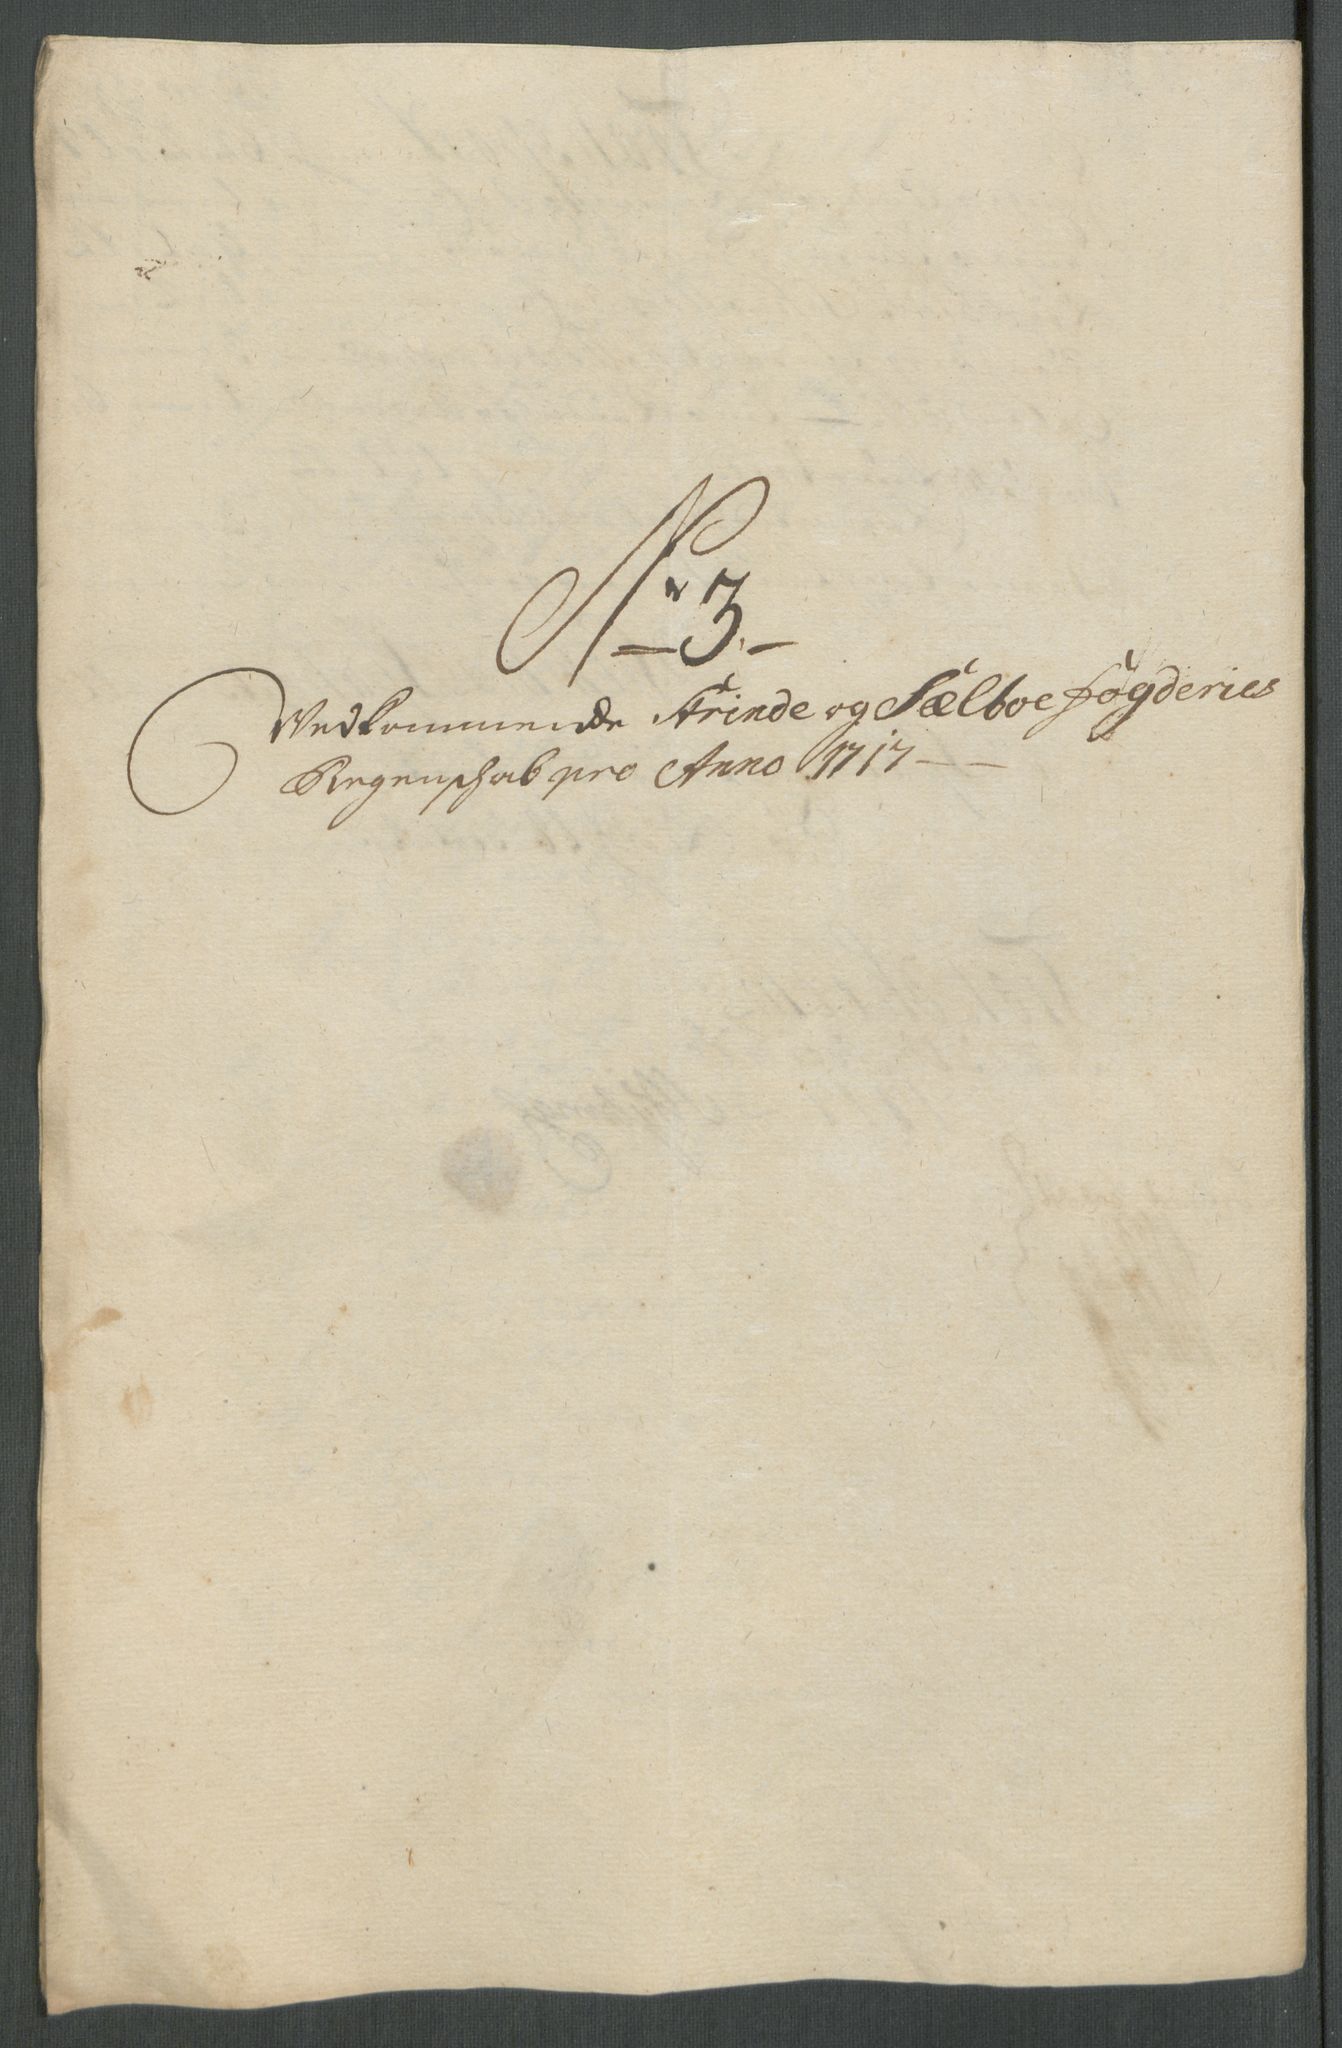 Nr 3.
Vedkommende Strinde og Sælboe fogderies
Regenschab pro Anno 1717